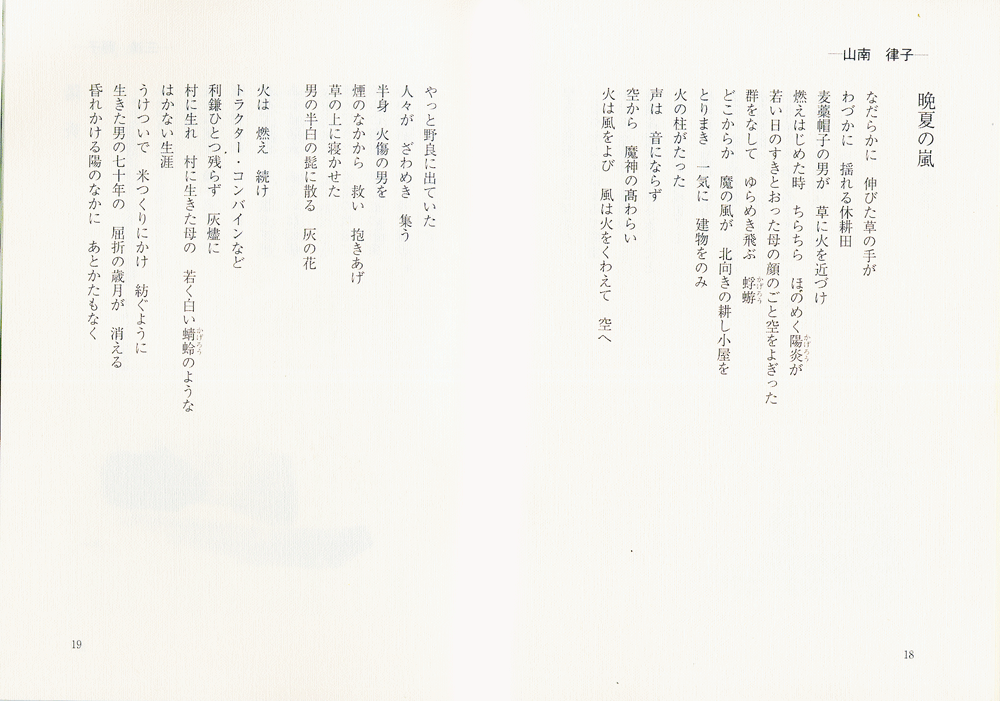 ―山南　律子―
晩夏の嵐
なだらかに　伸びた草の手が
わづかに　揺れる休耕田
麦藁帽子の男が　草に火を近づけ
燃えはじめた時　ちらちら　ほのめく陽炎が
かげろう
若い日のすきとおった母の顔のごと空をよぎった
群をなして　ゆらめき飛ぶ　蜉蝣
かげろう
どこからか　魔の風が　北向きの耕し小屋を
とりまき　一気に　建物をのみ
火の柱がたった
声は　音にならず
空から　魔神の高わらい
火は風をよび　風は火をくわえて　空へ
18
やっと野良に出ていた
人々が　ざわめき　集う
半身　火傷の男を
煙のなかから　救い　抱きあげ
草の上に寝かせた
男の半白の髭に散る　灰の花
火は　燃え　続け
トラクター・コンバインなど
利鎌ひとつ残らず　灰燼に
村に生れ　村に生きた母の　若く白い蜻蛉のような
かげろう
はかない生涯
うけついで　米つくりにかけ　紡ぐように
生きた男の七十年の　屈折の歳月が　消える
昏れかける陽のなかに　あとかたもなく
19